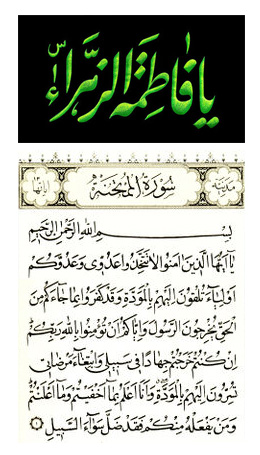 يا فاطمة الزهراء
مدنية
سورة الممتحنة
آياتها ١٣
بسم الله الرحمن الرحيم
يا أيها الذين آمنوا لا تتخذوا عدوي وعدوكم
أولياء تلقون إليهم بالمودة وقد كفروا بما جاءكم من
الحق يخرجون الرسول وإياكم أن تؤمنوا بالله ربكم
إن كنتم خرجتم جهادا في سبيلي وابتغاء مرضاتي
تسرون إليهم بالمودة وأنا أعلم بما أخفيتم وما أعلنتم
ومن يفعله منكم فقد ضل سواء السبيل